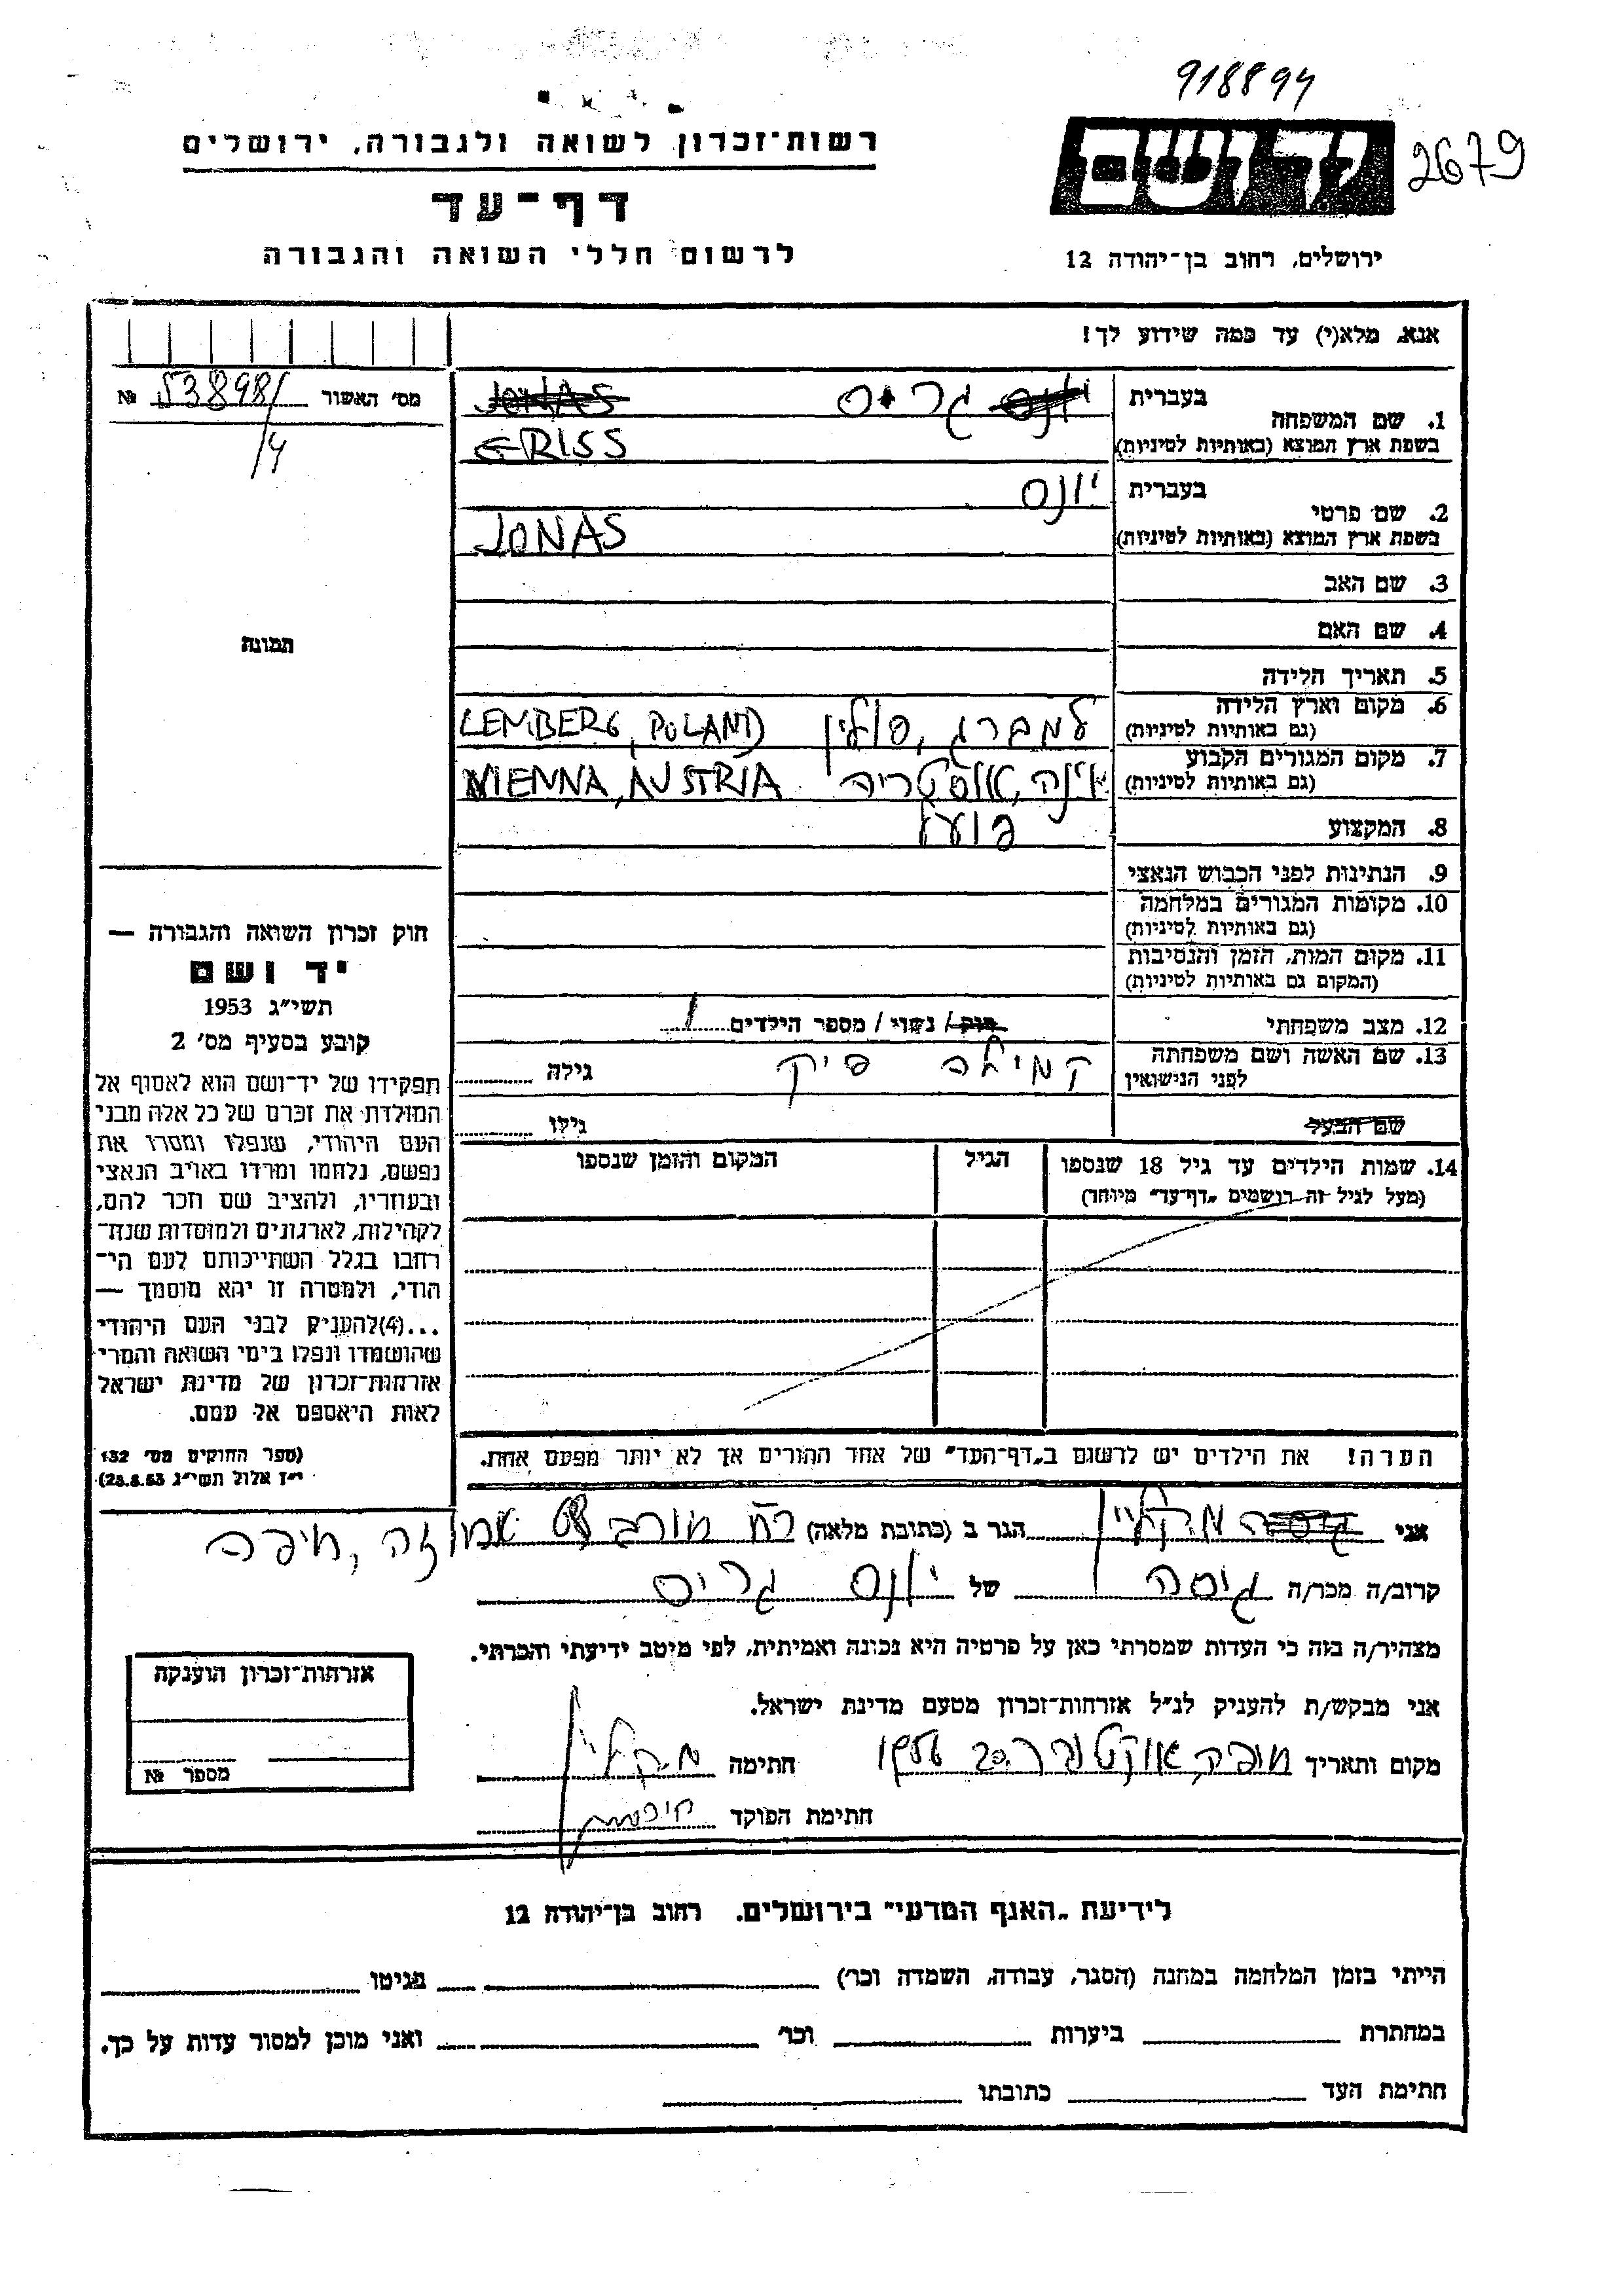 918894
2679
רשות־זכרון לשואה ולגבורה, ירושלים
דף־עד
לרשום חללי השואה והגבורה
יד ושם
ירושלים, רחוב בן־יהודה 12
אנא, מלא(י) עד כמה שידוע לך!
מס׳ האשור № 53898/4
1. שם המשפחה בעברית יונס גריס
בשפת ארץ המוצא (באותיות לטיניות) JONAS GRISS
2. שם פרטי בעברית יונס
בשפת ארץ המוצא (באותיות לטיניות) JONAS
3. שם האב
4. שם האם
תמונה
5. תאריך הלידה
6. מקום וארץ הלידה למברג, פולין LEMBERG, POLAND
(גם באותיות לטיניות)
7. מקום המגורים הקבוע וינה, אוסטריה VIENNA, AUSTRIA
(גם באותיות לטיניות)
8. המקצוע פועל
9. הנתינות לפני הכבוש הנאצי
10. מקומות המגורים במלחמה
(גם באותיות לטיניות)
11. מקום המות, הזמן והנסיבות
(המקום גם באותיות לטיניות)
12. מצב משפחתי רווק / נשוי / מספר הילדים 1
13. שם האשה ושם משפחתה קמילה פיק גילה
לפני הנישואין
שם הבעל גילו
14. שמות הילדים עד גיל 18 שנספו הגיל המקום והזמן שנספו
(מעל לגיל זה רושמים „דף־עד" מיוחד)
חוק זכרון השואה והגבורה —
יד ושם
תשי״ג 1953
קובע בסעיף מס׳ 2
תפקידו של יד־ושם הוא לאסוף אל
המולדת את זכרם של כל אלה מבני
העם היהודי, שנפלו ומסרו את
נפשם, נלחמו ומרדו באויב הנאצי
ובעוזריו, ולהציב שם וזכר להם,
לקהילות, לארגונים ולמוסדות שנח־
רבו בגלל השתייכותם לעם הי־
הודי, ולמטרה זו יהא מוסמך —
...(4)להעניק לבני העם היהודי
שהושמדו ונפלו בימי השואה והמרי
אזרחות־זכרון של מדינת ישראל
לאות היאספם אל עמם.
(ספר החוקים מס׳ 132
י״ז אלול תשי״ג 28.8.53)
הערה! את הילדים יש לרשום ב„דף־העד" של אחד ההורים אך לא יותר מפעם אחת.
אני הגר ב (כתובת מלאה) רח חיפה
קרוב/ה מכר/ה גיסה של יונס גריס
מצהיר/ה בזה כי העדות שמסרתי כאן על פרטיה היא נכונה ואמיתית, לפי מיטב ידיעתי והכרתי.
אני מבקש/ת להעניק לנ״ל אזרחות־זכרון מטעם מדינת ישראל.
מקום ותאריך חיפה, אוקטובר 20 חתימה
חתימת הפוקד
אזרחות־זכרון הוענקה
מספר №
לידיעת „האגף המדעי" בירושלים. רחוב בן־יהודה 12
הייתי בזמן המלחמה במחנה (הסגר, עבודה, השמדה וכר׳) בגיטו
במחתרת ביערות וכר׳ ואני מוכן למסור עדות על כך.
חתימת העד כתובתו